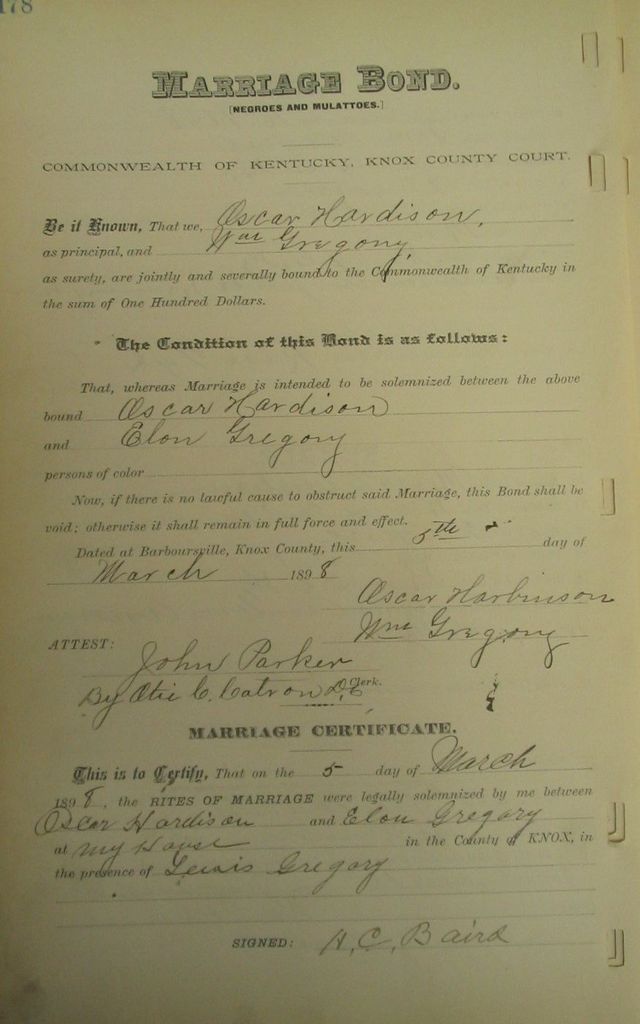 178
MARRIAGE BOND.
[NEGROES AND MULATTOES.]
COMMONWEALTH OF KENTUCKY, KNOX COUNTY COURT.
Be it Known, That we, Oscar Hardison,
as principal, and Wm Gregory,
as surety, are jointly and severally bound to the Commonwealth of Kentucky in
the sum of One Hundred Dollars.
The Condition of this Bond is as follows:
That, whereas Marriage is intended to be solemnized between the above
bound Oscar Hardison
and Elon Gregory
persons of color
Now, if there is no lawful cause to obstruct said Marriage, this Bond shall be
void; otherwise it shall remain in full force and effect.
Dated at Barboursville, Knox County, this 5th day of
March 1898
Oscar Harbinson
Wm Gregory
ATTEST:
John Parker
Clerk.
By Otis C. Catron D.C.
MARRIAGE CERTIFICATE.
This is to Certify, That on the 5 day of March
1898, the RITES OF MARRIAGE were legally solemnized by me between
Oscar Hardison and Elon Gregory
at my House in the County of KNOX, in
the presence of Lewis Gregory
SIGNED: H. C. Baird